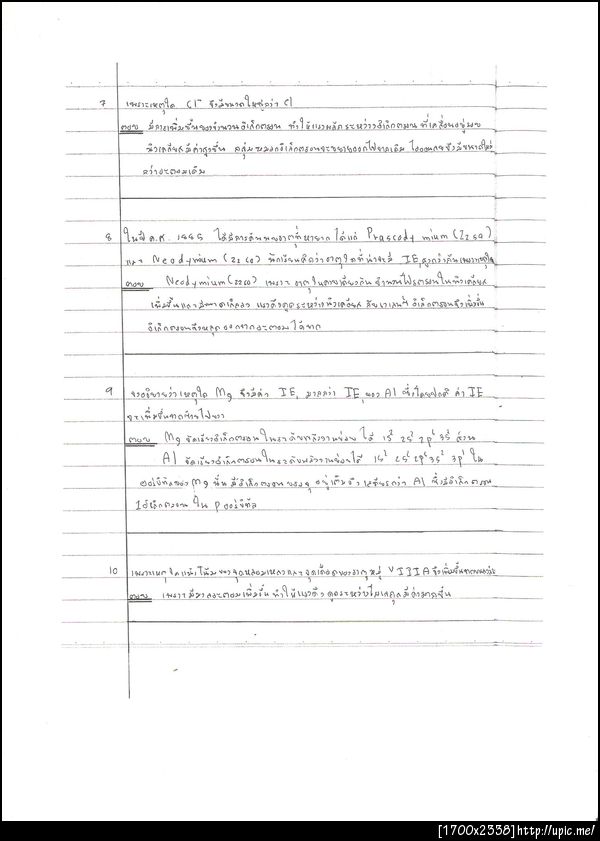 7 เพราะเหตุใด Cl⁻ จึงมีขนาดใหญ่กว่า Cl
ตอบ มีการเพิ่มขึ้นของจำนวนอิเล็กตรอน ทำให้แรงผลักระหว่างอิเล็กตรอน ที่เคลื่อนอยู่รอบ
นิวเคลียสมีค่าสูงขึ้น กลุ่มหมอกอิเล็กตรอนจะขยายออกไปจากเดิม ไอออนลบจึงมีขนาดใหญ่
กว่าอะตอมเดิม
8 ในปี ค.ศ. 1885 ได้มีการค้นพบธาตุที่หายาก ได้แก่ Prascody mium (Z=59)
และ Neodymium (Z=60) นักเรียนคิดว่าธาตุใดที่น่าจะมี IE สูงกว่ากันเพราะเหตุใด
ตอบ Neodymium (Z=60) เพราะ ธาตุในคาบเดียวกัน จำนวนโปรตอนในนิวเคลียส
เพิ่มขึ้นและมีขนาดเล็กลง แรงดึงดูดระหว่างนิวเคลียส กับเวเลนซ์ อิเล็กตรอนจึงเพิ่มขึ้น
อิเล็กตรอนจึงหลุดออกจากอะตอมได้ยาก
9 จงอธิบายว่าเหตุใด Mg จึงมีค่า IE₁ มากกว่า IE₁ ของ Al ซึ่งโดยปกติ ค่า IE
จะเพิ่มขึ้นจากซ้ายไปขวา
ตอบ Mg จัดเรียงอิเล็กตรอนในระดับพลังงานย่อย ได้ 1s² 2s² 2p⁶ 3s² ส่วน
Al จัดเรียงอิเล็กตรอนในระดับพลังงานย่อยได้ 1s² 2s² 2p⁶ 3s² 3p¹ ใน
ออร์บิทัลของ Mg นั้นมีอิเล็กตรอนบรรจุอยู่เต็มจึงเสถียรกว่า Al ซึ่งมีอิเล็กตรอน
1 อิเล็กตรอน ใน p ออร์บิทัล
10 เพราะเหตุใดแนวโน้มของจุดหลอมเหลวและจุดเดือดของธาตุหมู่ VIIIA จึงเพิ่มขึ้นจาก
ตอบ เพราะมีมวลอะตอมเพิ่มขึ้น ทำให้แรงดึงดูดระหว่างโมเลกุลมีค่ามากขึ้น
[1700x2338] http://upic.me/